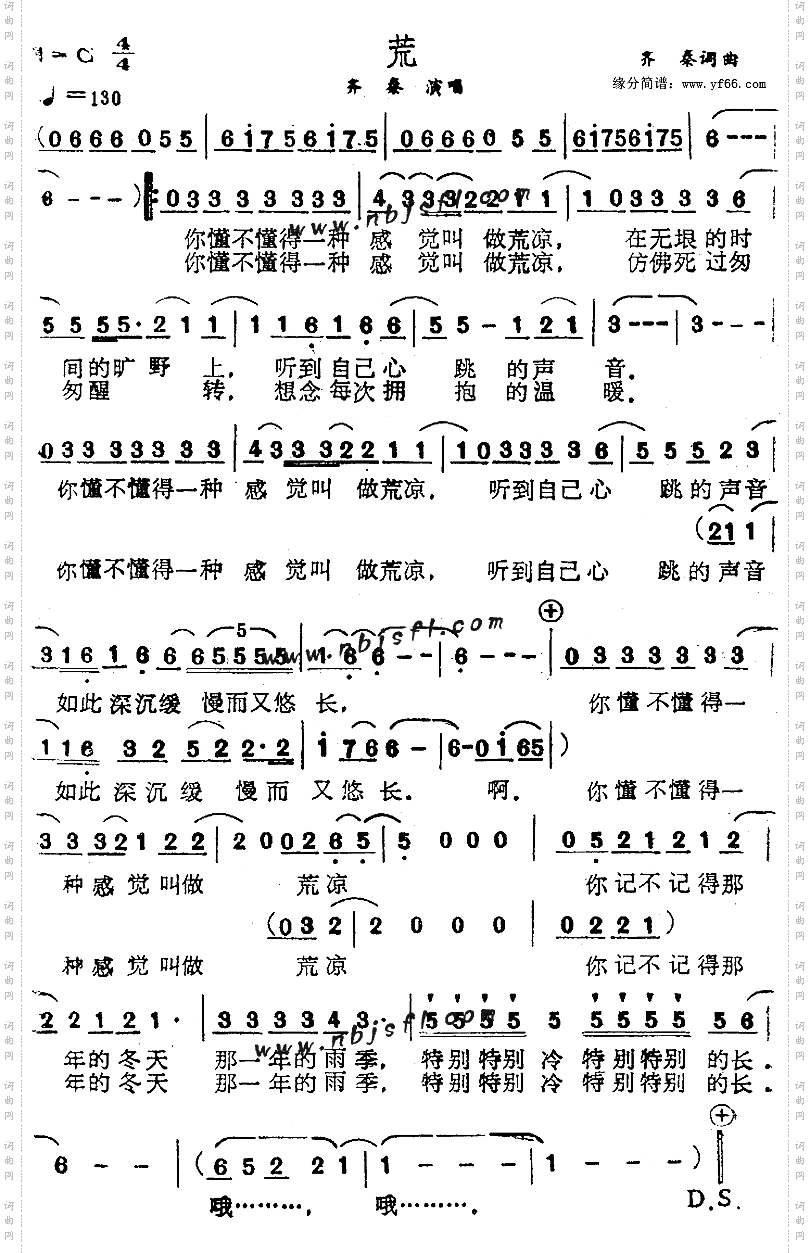 1=C 4/4
荒
齐 秦词曲
♩=130
齐 秦 演唱
缘分简谱：www.yf66.com
(0666055 | 6i756i75 | 0666055 | 6i756i75 | 6---
6---) ‖: 033333333 | 433322 11 | 1033336
www.nbjsfl.com
你懂不懂得一种 感 觉叫 做荒凉， 在无垠的时
你懂不懂得一种 感 觉叫 做荒凉， 仿佛死过匆
5555·211 | 116166 | 55-121 | 3--- | 3--
间的旷野 上，听到自己心 跳 的声 音．
匆醒 转，想念每次拥 抱 的温 暖．
033333333 | 43332211 | 10333336 | 555523
你懂不懂得一种 感 觉叫 做荒凉， 听到自己心 跳的声音
(211
你懂不懂得一种 感 觉叫 做荒凉， 听到自己心 跳的声音
3161666 5555 | 166-- | 6--- | 03333333
www.nbjsfl.com
如此深沉缓 慢而又悠 长， 你懂不懂得一
116 32 522·2 | i766- | 6-0i65)
如此深沉缓 慢而 又悠长． 啊． 你懂不懂得一
33321 22 | 200265 | 5000 | 0521212
种感觉叫做 荒凉 你记不记得那
(032 | 2000 | 0221)
种感觉叫做 荒凉 你记不记得那
22121· | 3333343· | 5555 5 5555 56
www.nbjsfl.com
年的冬天 那一年的雨季，特别特别冷特别特别 的长．
年的冬天 那一年的雨季，特别特别冷特别特别 的长．
6-- | (65221 | 1--- | 1---)
哦………， 哦………．
D.S.
词曲网